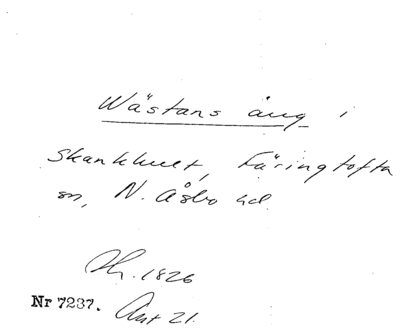 Wästans äng i
Skankhult, Färingtofta
sn, N. Åsbo hd.
1826
Nr 7237. Ant 21.